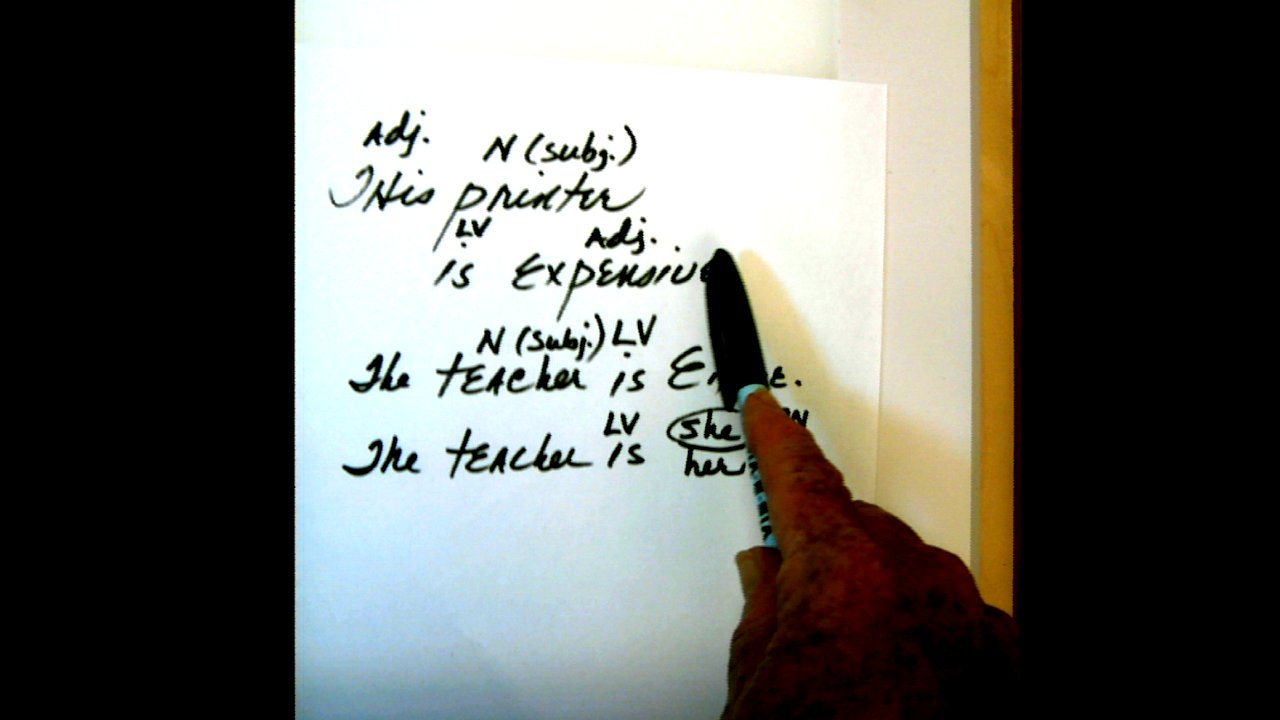 Adj. N (subj.)
THis printer
LV Adj.
is Expensive
N (subj.) LV
The tEACher is
LV she
The tEACher is her